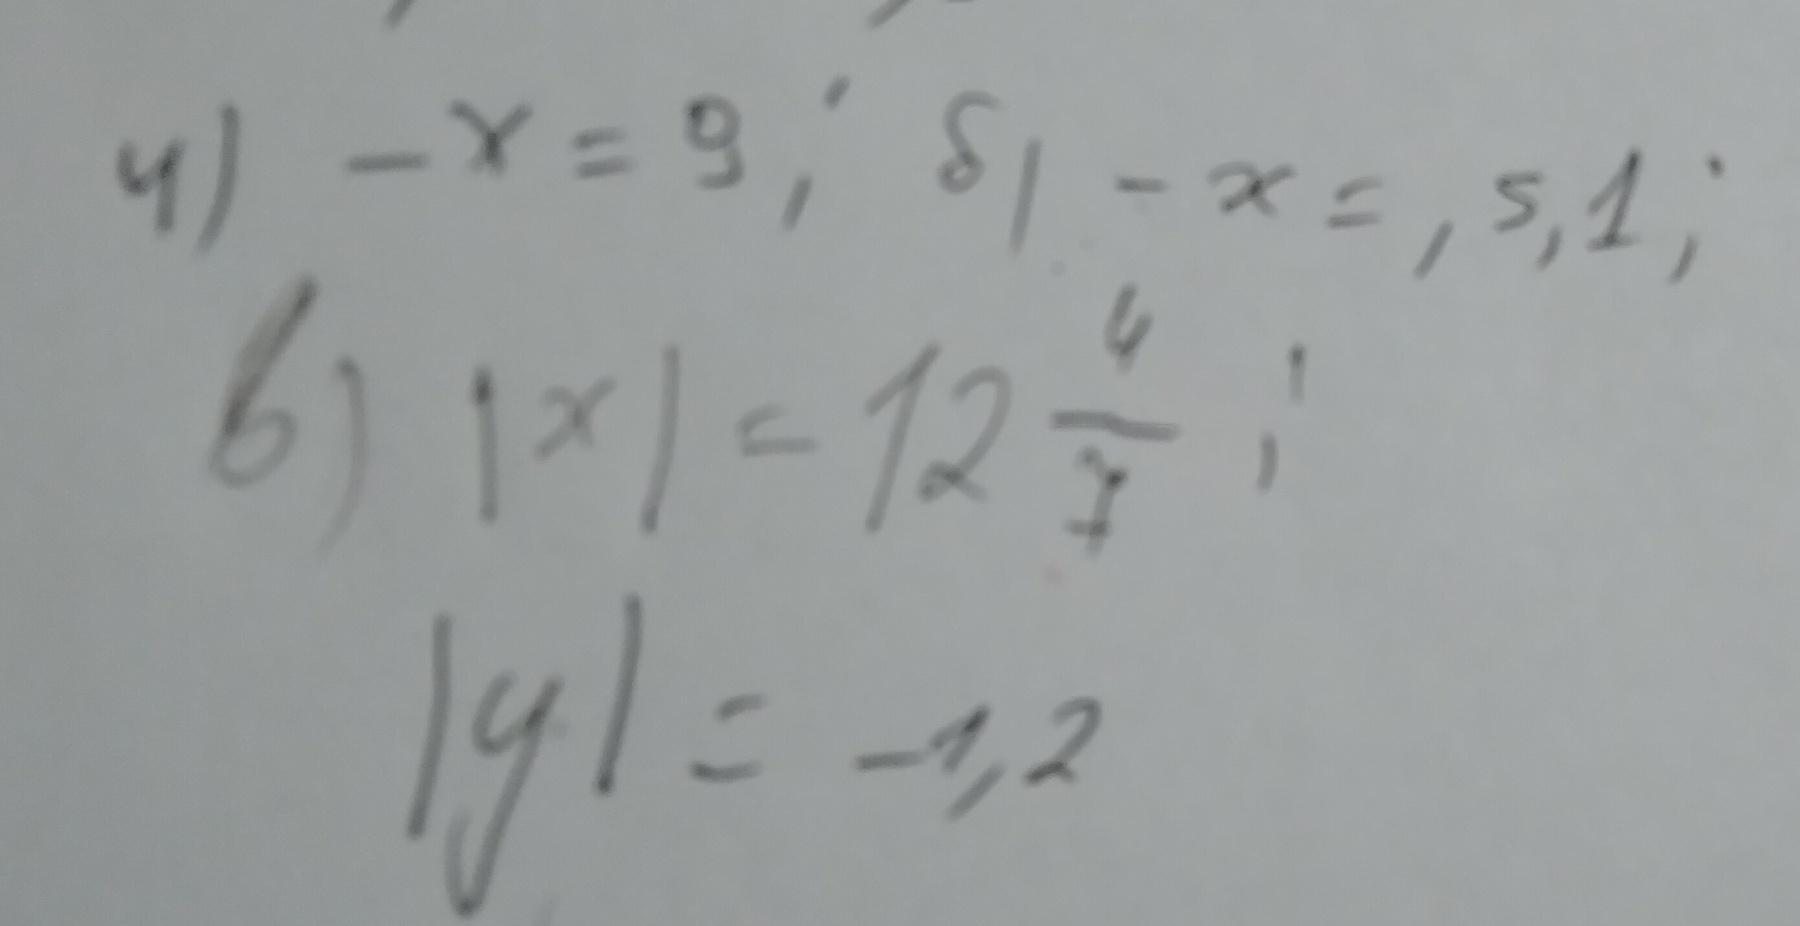 4) -x = 9; б) -x = , 5,1;
в) |x| = 12 4/7;
|y| = -1,2